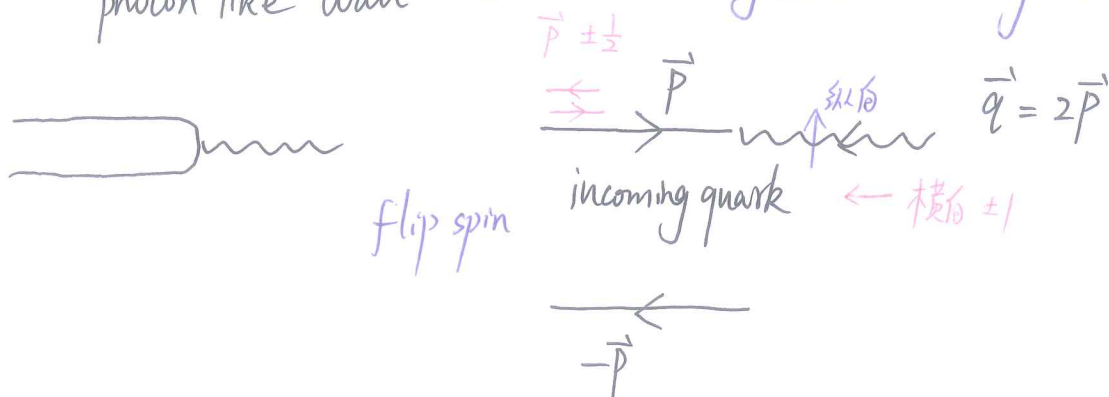 photon like
p⃗ ±½
p⃗
纵向
q⃗ = 2p⃗
incoming quark
← 横向 ±1
flip spin
-p⃗